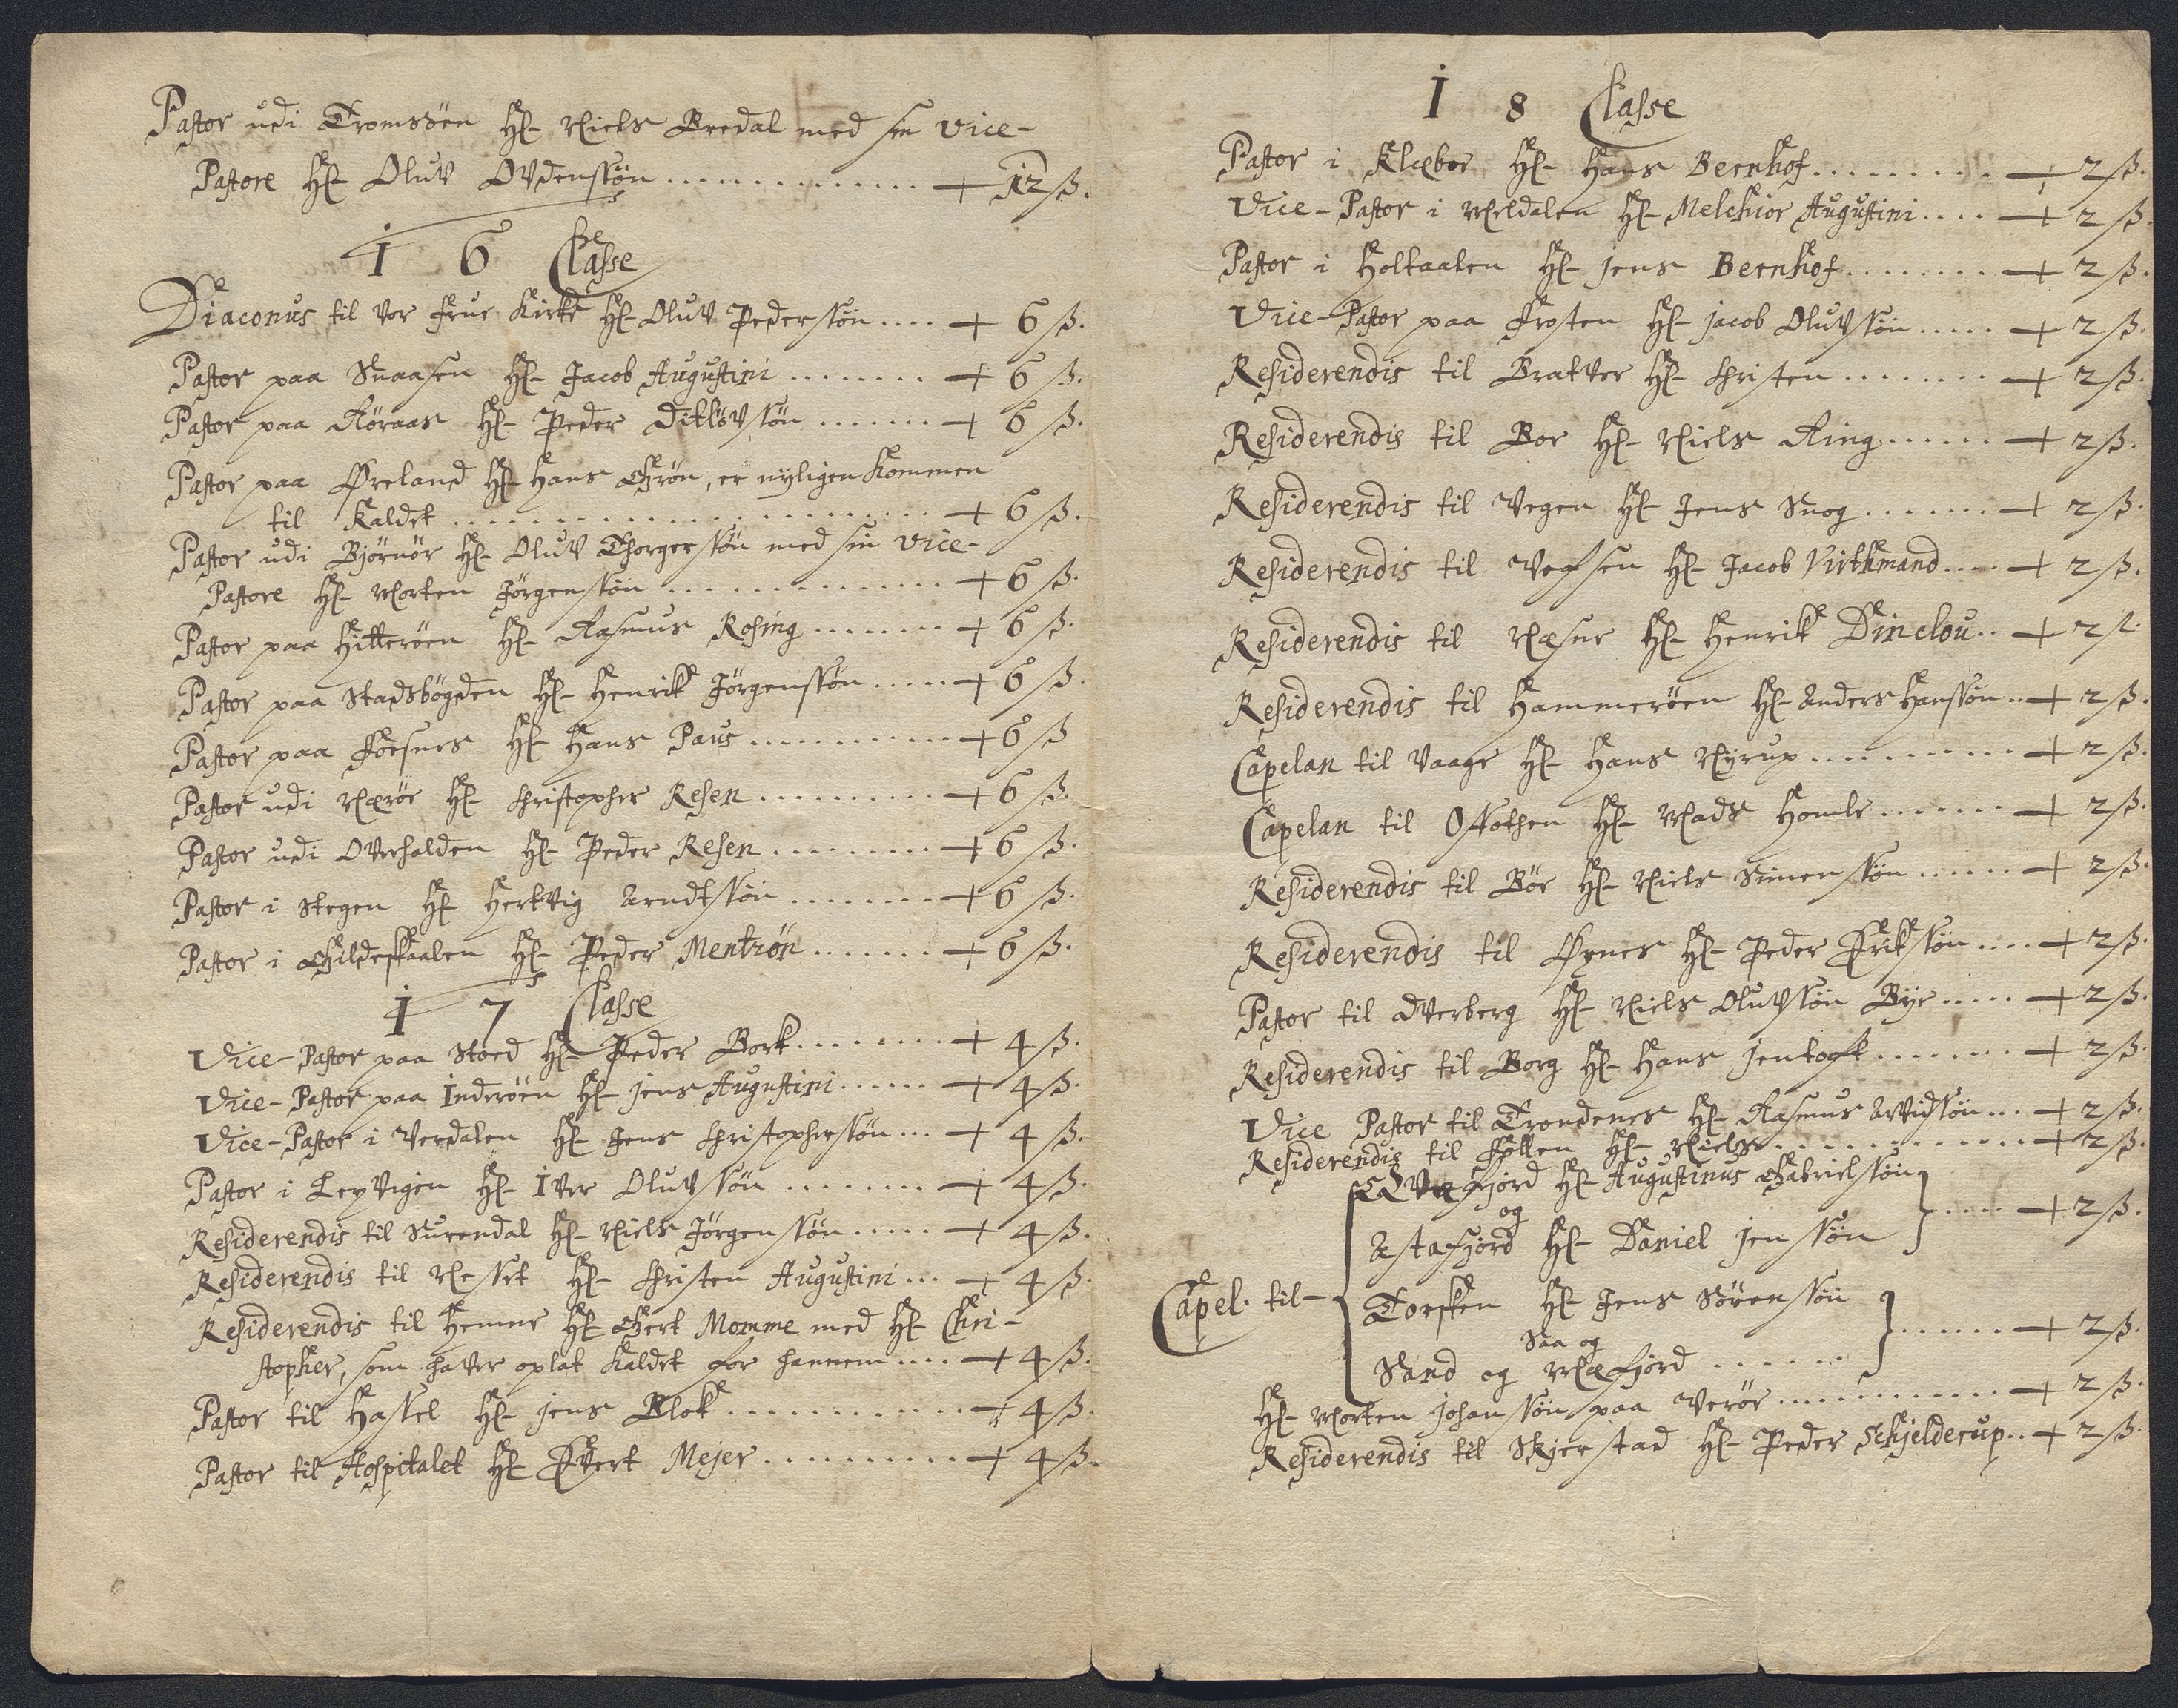 Pastor udi Tromsöen Hr Niels Bredal med sin vice-
Pastore Hr Oluv Ovdenssön + 12 ß.
16 Classe
Diaconus til vor Frue Kirke Hr Oluv Pederssön + 6 ß.
Pastor paa Snaasen Hr Jacob Augustini + 6 ß.
Pastor paa Röraas Hr Peder Ditlövssön + 6 ß.
Pastor paa Øreland Hr Hans Grön, er nyligen kommen
til Kaldet + 6 ß.
Pastor udi Bjørnör Hr Oluv Thorgerssön med sin vice-
Pastore Hr Morten Jörgenssön + 6 ß.
Pastor paa Hitteröen Hr Rasmus Rosing + 6 ß.
Pastor paa Stadsbögden Hr Henrik Jörgenssön + 6 ß.
Pastor paa Foesnes Hr Hans Paus + 6 ß
Pastor udi Nærör Hr Christopher Resen + 6 ß.
Pastor udi Overhalden Hr Peder Resen + 6 ß.
Pastor i Stegen Hr Hertvig Arndtssön + 6 ß.
Pastor i Gildeskaalen Hr Peder Mentzøn + 6 ß.
17 Classe
Vice-Pastor paa Stoed Hr Peder Bork + 4 ß.
Vice-Pastor paa Inderöen Hr Jens Augustini + 4 ß.
Vice-Pastor i Verdalen Hr Jens Christopherssön + 4 ß.
Pastor i Lexvigen Hr Iver Oluvssön + 4 ß.
Residerendis til Surendal Hr Niels Jörgenssön + 4 ß.
Residerendis til Nesset Hr Christen Augustini + 4 ß.
Residerendis til Hemne Hr Gert Momme med Hr Chri-
stopher, som haver oplat Kaldet for hannem + 4 ß.
Pastor til Hassel Hr Jens Blok + 4 ß.
Pastor til Hospitalet Hr Evert Mejer + 4 ß.
18 Classe
Pastor i Klæboe Hr Hans Bernhof + 2 ß.
Vice-Pastor i Meldalen Hr Melchior Augustini + 2 ß.
Pastor i Holtaalen Hr Jens Bernhof + 2 ß.
Vice-Pastor paa Frosten Hr Jacob Oluvssön + 2 ß.
Residerendis til Bratver Hr Christen + 2 ß.
Residerendis til Boe Hr Niels Ring + 2 ß.
Residerendis til Vegen Hr Jens Snog + 2 ß.
Residerendis til Vefsen Hr Jacob Virthmand + 2 ß.
Residerendis til Næsne Hr Henrik Dinclou + 2 ß.
Residerendis til Hammeröen Hr Anders Hanssön + 2 ß.
Capelan til Vaage Hr Hans Nyrup + 2 ß.
Capelan til Ofsothen Hr Mads Homle + 2 ß.
Residerendis til Bör Hr Niels Simenssön + 2 ß.
Residerendis til Øxnes Hr Peder Erikssön + 2 ß.
Pastor til Dverberg Hr Niels Oluvssön Bye + 2 ß.
Residerendis til Borg Hr Hans Jentoft + 2 ß.
Vice Pastor til Trondenes Hr Rasmus Arvidssön + 2 ß.
Residerendis til Folden Hr Niels + 2 ß.
Qvæfjord Hr Augustinus Gabrielssön
og + 2 ß.
Astafjord Hr Daniel Jenssön
Capel. til Torsken Hr Jens Sörenssön
Saa og + 2 ß.
Sand og Mefjord
Hr Morten Johanssön paa Veröe + 2 ß.
Residerendis til Skjerstad Hr Peder Schjelderup + 2 ß.